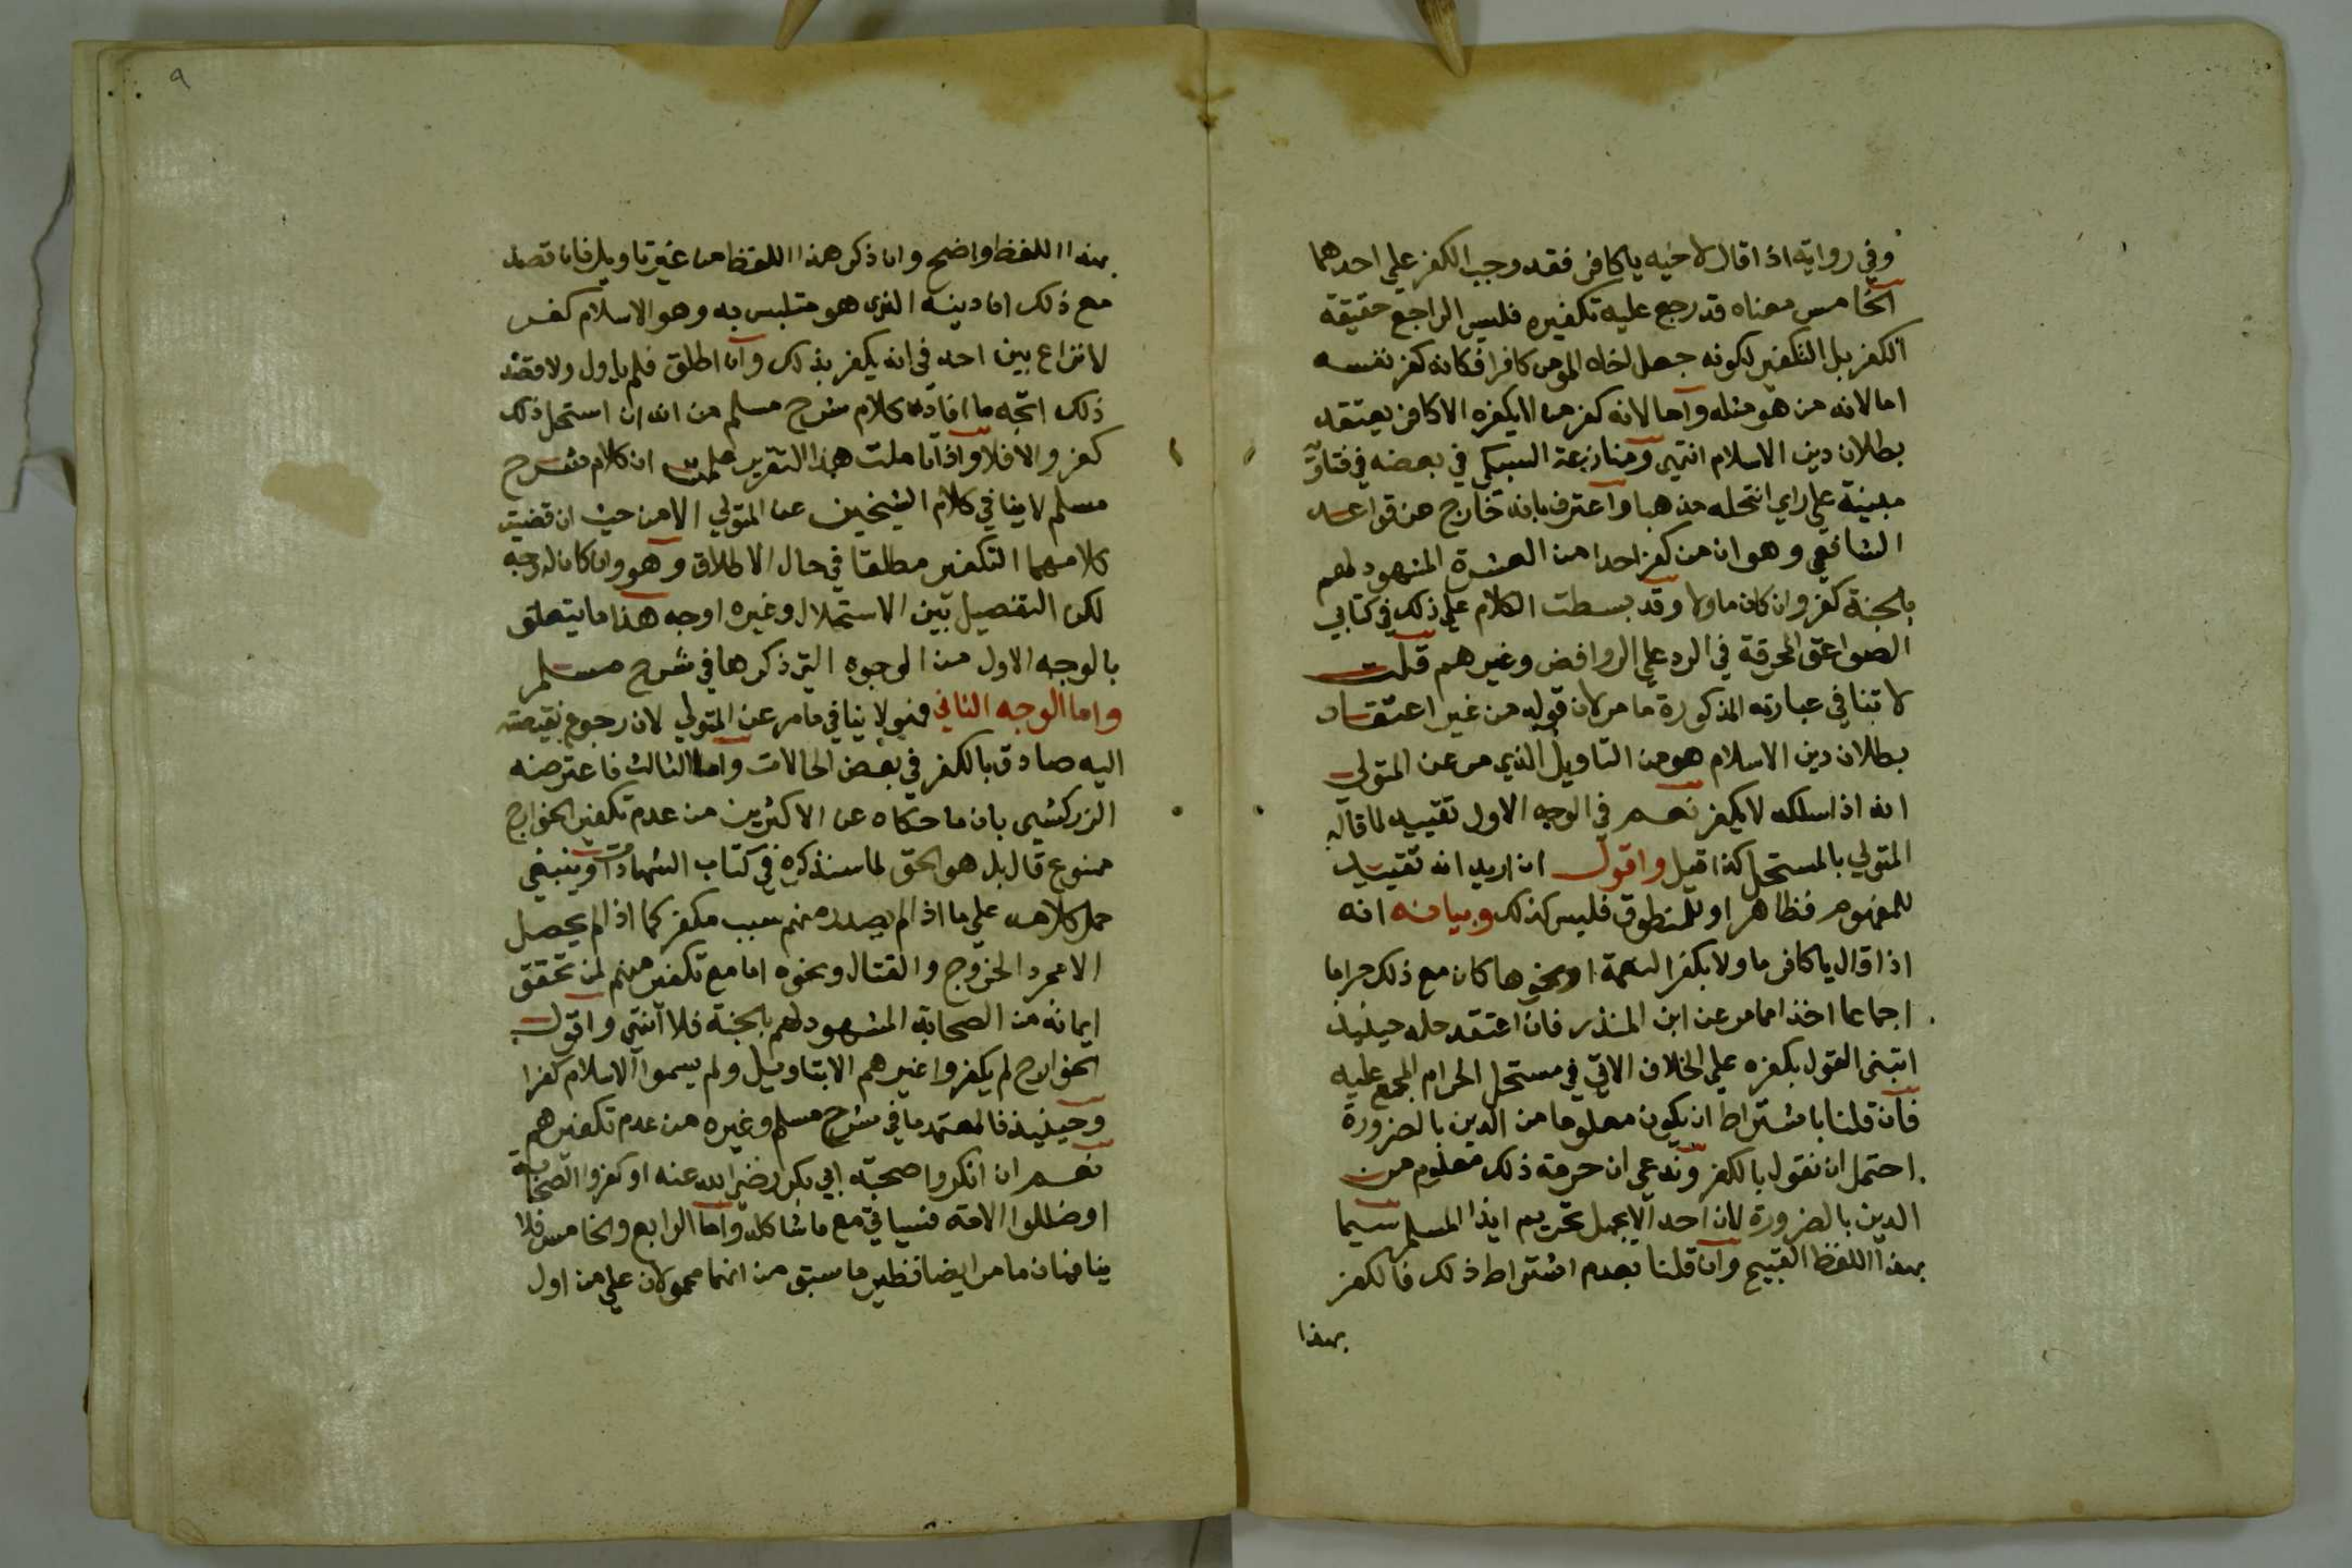 وفي رواية اذا قال لاخيه ياكافر فقد وجب الكفر علي احدهما
الخامس معناه قد رجع عليه تكفيره فليس الراجع حقيقة
الكفر بل التكفير لكونه جعل اخاه المومن كافرا فكانه كفر نفسه
اما لانه من هو مثله واما لانه كفر من لا يكفره الا كافر يعتقد
بطلان دين الاسلام انتهي ومنازعة السبكي في بعضه في فتاويه
مبنية علي راي انتحله مذهبا واعترف بانه خارج عن قواعد
الشافعي وهو ان من كفر احدا من العشرة المشهود لهم
بالجنة كفر وان كان ماولا وقد بسطت الكلام علي ذلك في كتابي
الصواعق المحرقة في الرد علي الروافض وغيرهم قلت
لا تنافي عبارته المذكورة ما مر لان قوله من غير اعتقاد
بطلان دين الاسلام هو من التاويل الذي مر عن المتولي
انه اذا سلكه لا يكفر نعم في الوجه الاول تقييد لما قاله
المتولي بالمستحل كذا قيل واقول ان اريد انه تقييد
للمفهوم فظاهر او للمنطوق فليس كذلك وبيانه انه
اذا قال ياكافر ماولا بكفر النعمة او نحوها كان مع ذلك حراما
اجماعا اخذا مما مر عن ابن المنذر فان اعتقد حله حينيذ
انبنى القول بكفره علي الخلاف الاتي في مستحل الحرام المجمع عليه
فان قلنا باشتراط ان يكون معلوما من الدين بالضرورة
احتمل ان نقول بالكفر وندعي ان حرمة ذلك معلوم من
الدين بالضرورة لان احد الا يجهل تحريم ايذا المسلم سيما
بهذا اللفظ القبيح وان قلنا بعدم اشتراط ذلك فالكفر
بهذا
٩
بهذا اللفظ واضح وان ذكر هذا اللفظ من غير تاويل فان قصد
مع ذلك ان دينه الذي هو متلبس به وهو الاسلام كفر
لا نزاع بين احد في انه يكفر بذلك وان اطلق فلم ياول ولا قصد
ذلك اتجه ما افاده كلام شرح مسلم من انه ان استحل ذلك
كفر والا فلا واذا تاملت هذا التقرير علمت ان كلام شرح
مسلم لا ينافي كلام الشيخين عن المتولي الا من حيث ان قضيت
كلامهما التكفير مطلقا في حال الاطلاق وهو وان كان له وجه
لكن التفصيل بين الاستحلال وغيره اوجه هذا ما يتعلق
بالوجه الاول من الوجوه التي ذكرها في شرح مسلم
واما الوجه الثاني فهو لا ينافي ما مر عن المتولي لان رجوع نقيصته
اليه صادق بالكفر في بعض الحالات واما الثالث فاعترضه
الزركشي بان ما حكاه عن الاكثرين من عدم تكفير الخوارج
ممنوع قال بل هو الحق لما سنذكره في كتاب الشهادات وينبغي
حمل كلامه علي ما اذا لم يصدر منهم سبب مكفر كما اذا لم يحصل
الا مجرد الخروج والقتال ونحوه اما مع تكفيرهم لمن تحقق
ايمانه من الصحابة المشهود لهم بالجنة فلا انتهي واقول
الخوارج لم يكفروا غيرهم الا بتاويل ولم يسموا الاسلام كفرا
وحينيذ فالمعتمد ما في شرح مسلم وغيره من عدم تكفيرهم
نعم ان انكروا صحبة ابي بكر رضي الله عنه او كفروا الصحابة
او ضللوا الامة فسياتي مع ما شاكله واما الرابع والخامس فلا
ينافيان ما مر ايضا نظير ما سبق من انهما محمولان علي من اول